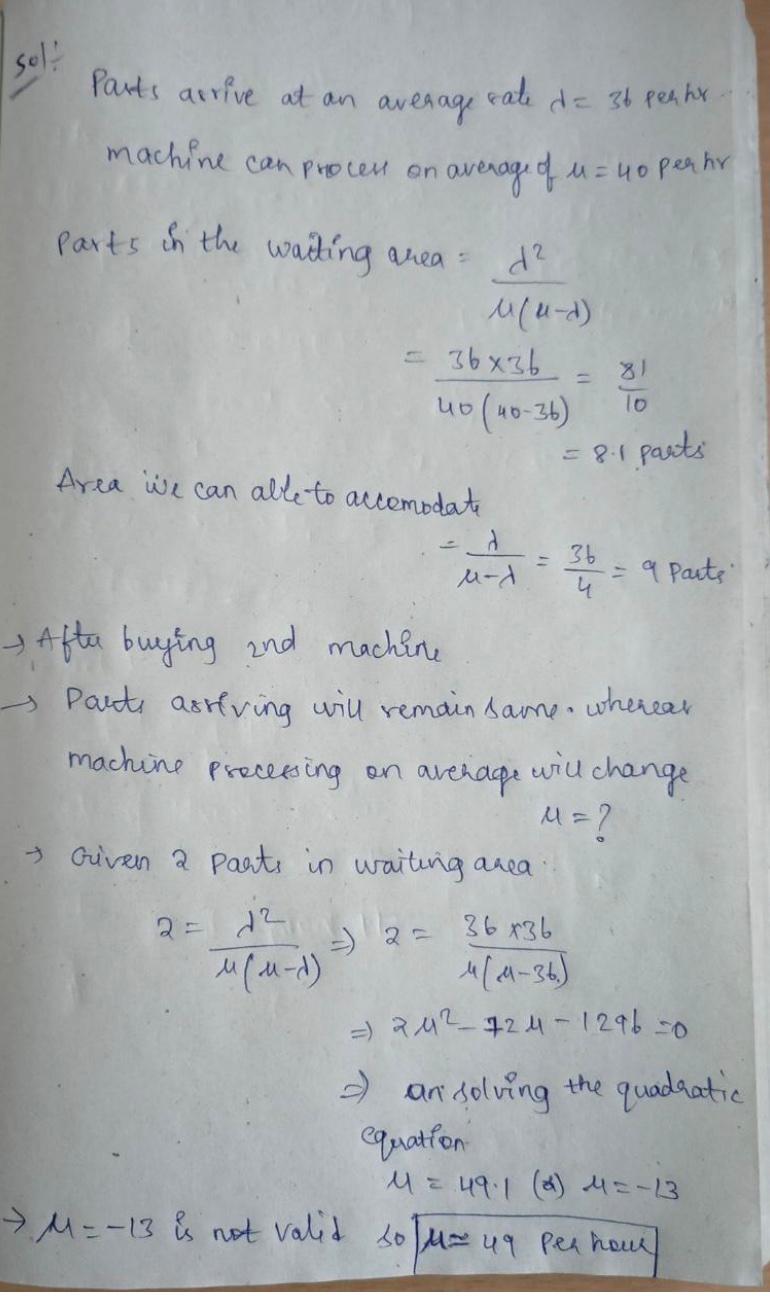 sol:-
Parts arrive at an average rate λ = 36 per hr
machine can process on average of μ = 40 per hr
Parts in the waiting area = λ² / μ(μ-λ)
= 36×36 / 40(40-36) = 81/10
= 8.1 parts
Area we can able to accomodate
= λ / μ-λ = 36/4 = 9 Parts.
→ After buying 2nd machine
→ Parts arriving will remain same. whereas
machine processing on average will change
μ = ?
→ Given 2 parts in waiting area.
2 = λ² / μ(μ-λ) ⇒ 2 = 36×36 / μ(μ-36)
⇒ 2μ² - 72μ - 1296 = 0
⇒ on solving the quadratic
equation
μ = 49.1 (or) μ = -13
→ μ = -13 is not valid so μ ≃ 49 per hour